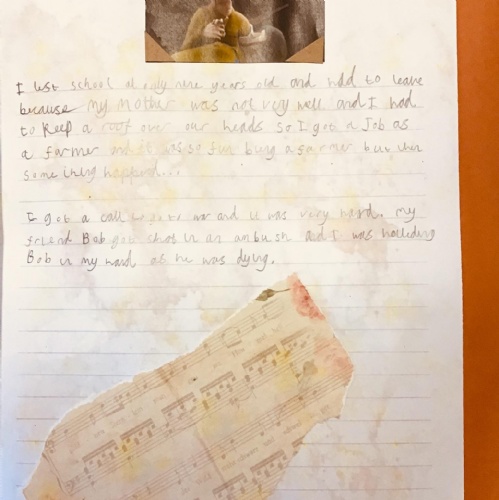 I left school at only nine years old and had to leave
because my mother was not very well and I had
to keep a roof over our heads so I got a Job as
a farmer and it was so fun being a farmer but then
something happend...
I got a call to go to war and it was very hard. my
friend Bob got shot in an ambush and I was holeding
Bob in my hand as he was dying.